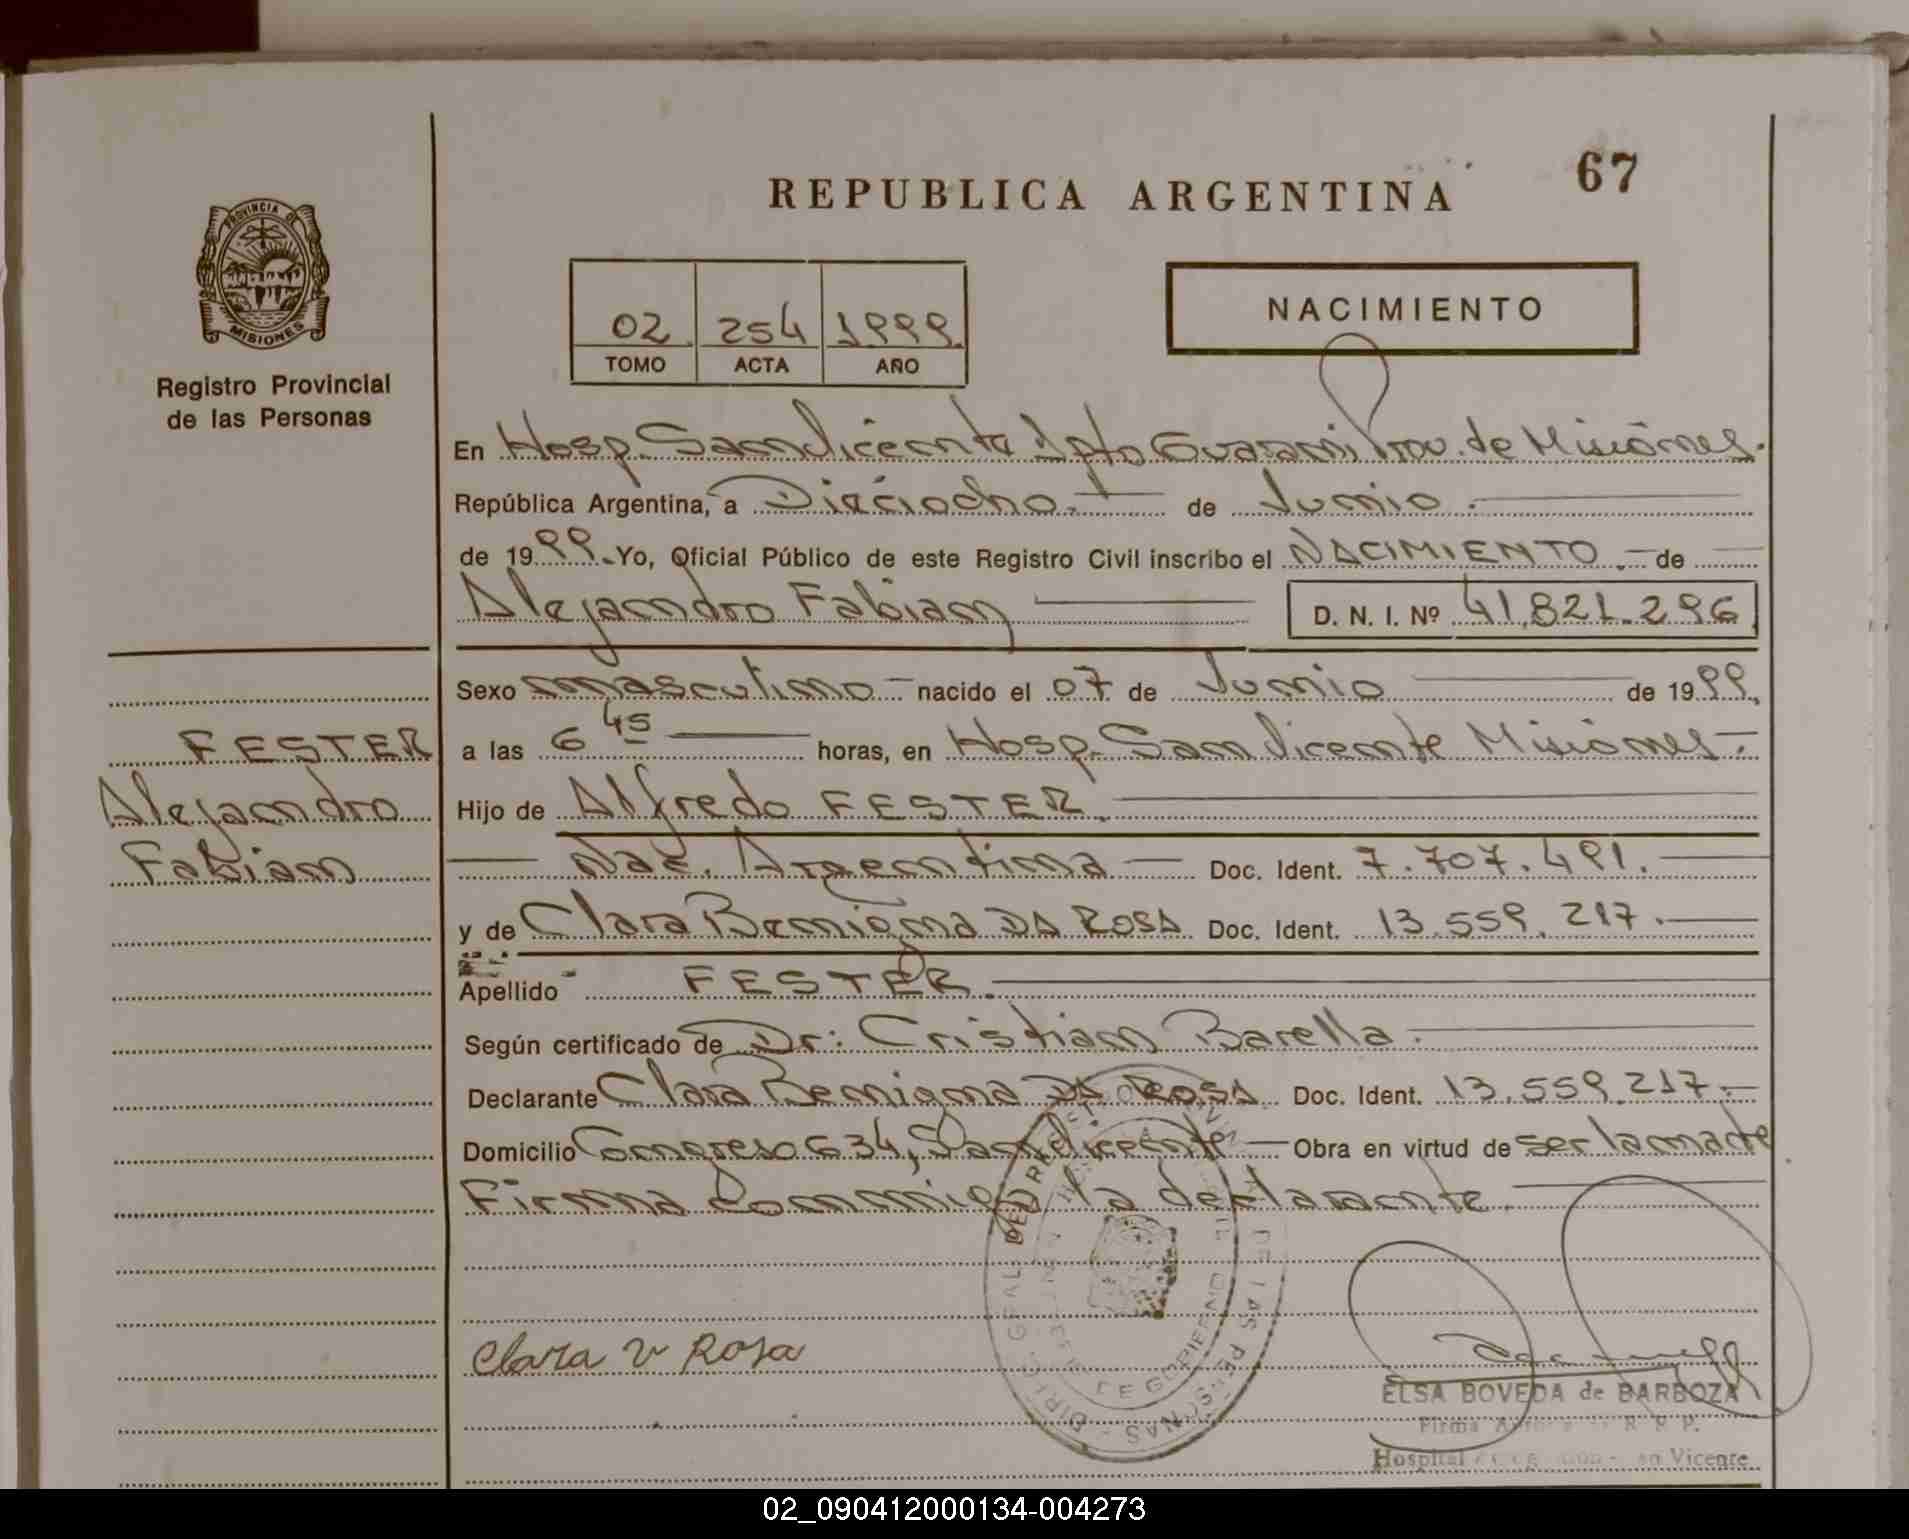 67
REPUBLICA ARGENTINA
PROVINCIA D
MISIONES
Registro Provincial
de las Personas
02 254 1999
TOMO ACTA AÑO
NACIMIENTO
En Hosp. San Vicente Dpto Guarani Prov. de Misiones.
República Argentina, a Dieciocho. de Junio.
de 1999. Yo, Oficial Público de este Registro Civil inscribo el NACIMIENTO. de
Alejandro Fabian D. N. I. Nº 41.821.296
Sexo masculino nacido el 07 de Junio de 1999.
a las 6 45 horas, en Hosp. San Vicente Misiones.
Hijo de Alfredo FESTER.
Nac. Argentina Doc. Ident. 7.707.491.
y de Clara Benigna DA ROSA Doc. Ident. 13.559.217.
Apellido FESTER.
Según certificado de Dr: Cristian Barella.
Declarante Clara Benigna DA ROSA Doc. Ident. 13.559.217.
Domicilio Congreso 634, San Vicente Obra en virtud de ser la madre
Firma conmigo la declarante.
FESTER
Alejandro
Fabian
Clara Rosa
DE GOBIERNO
ELSA BOVEDA de BARBOZA
Firma R. P. P.
Hospital Vicente
02_090412000134-004273